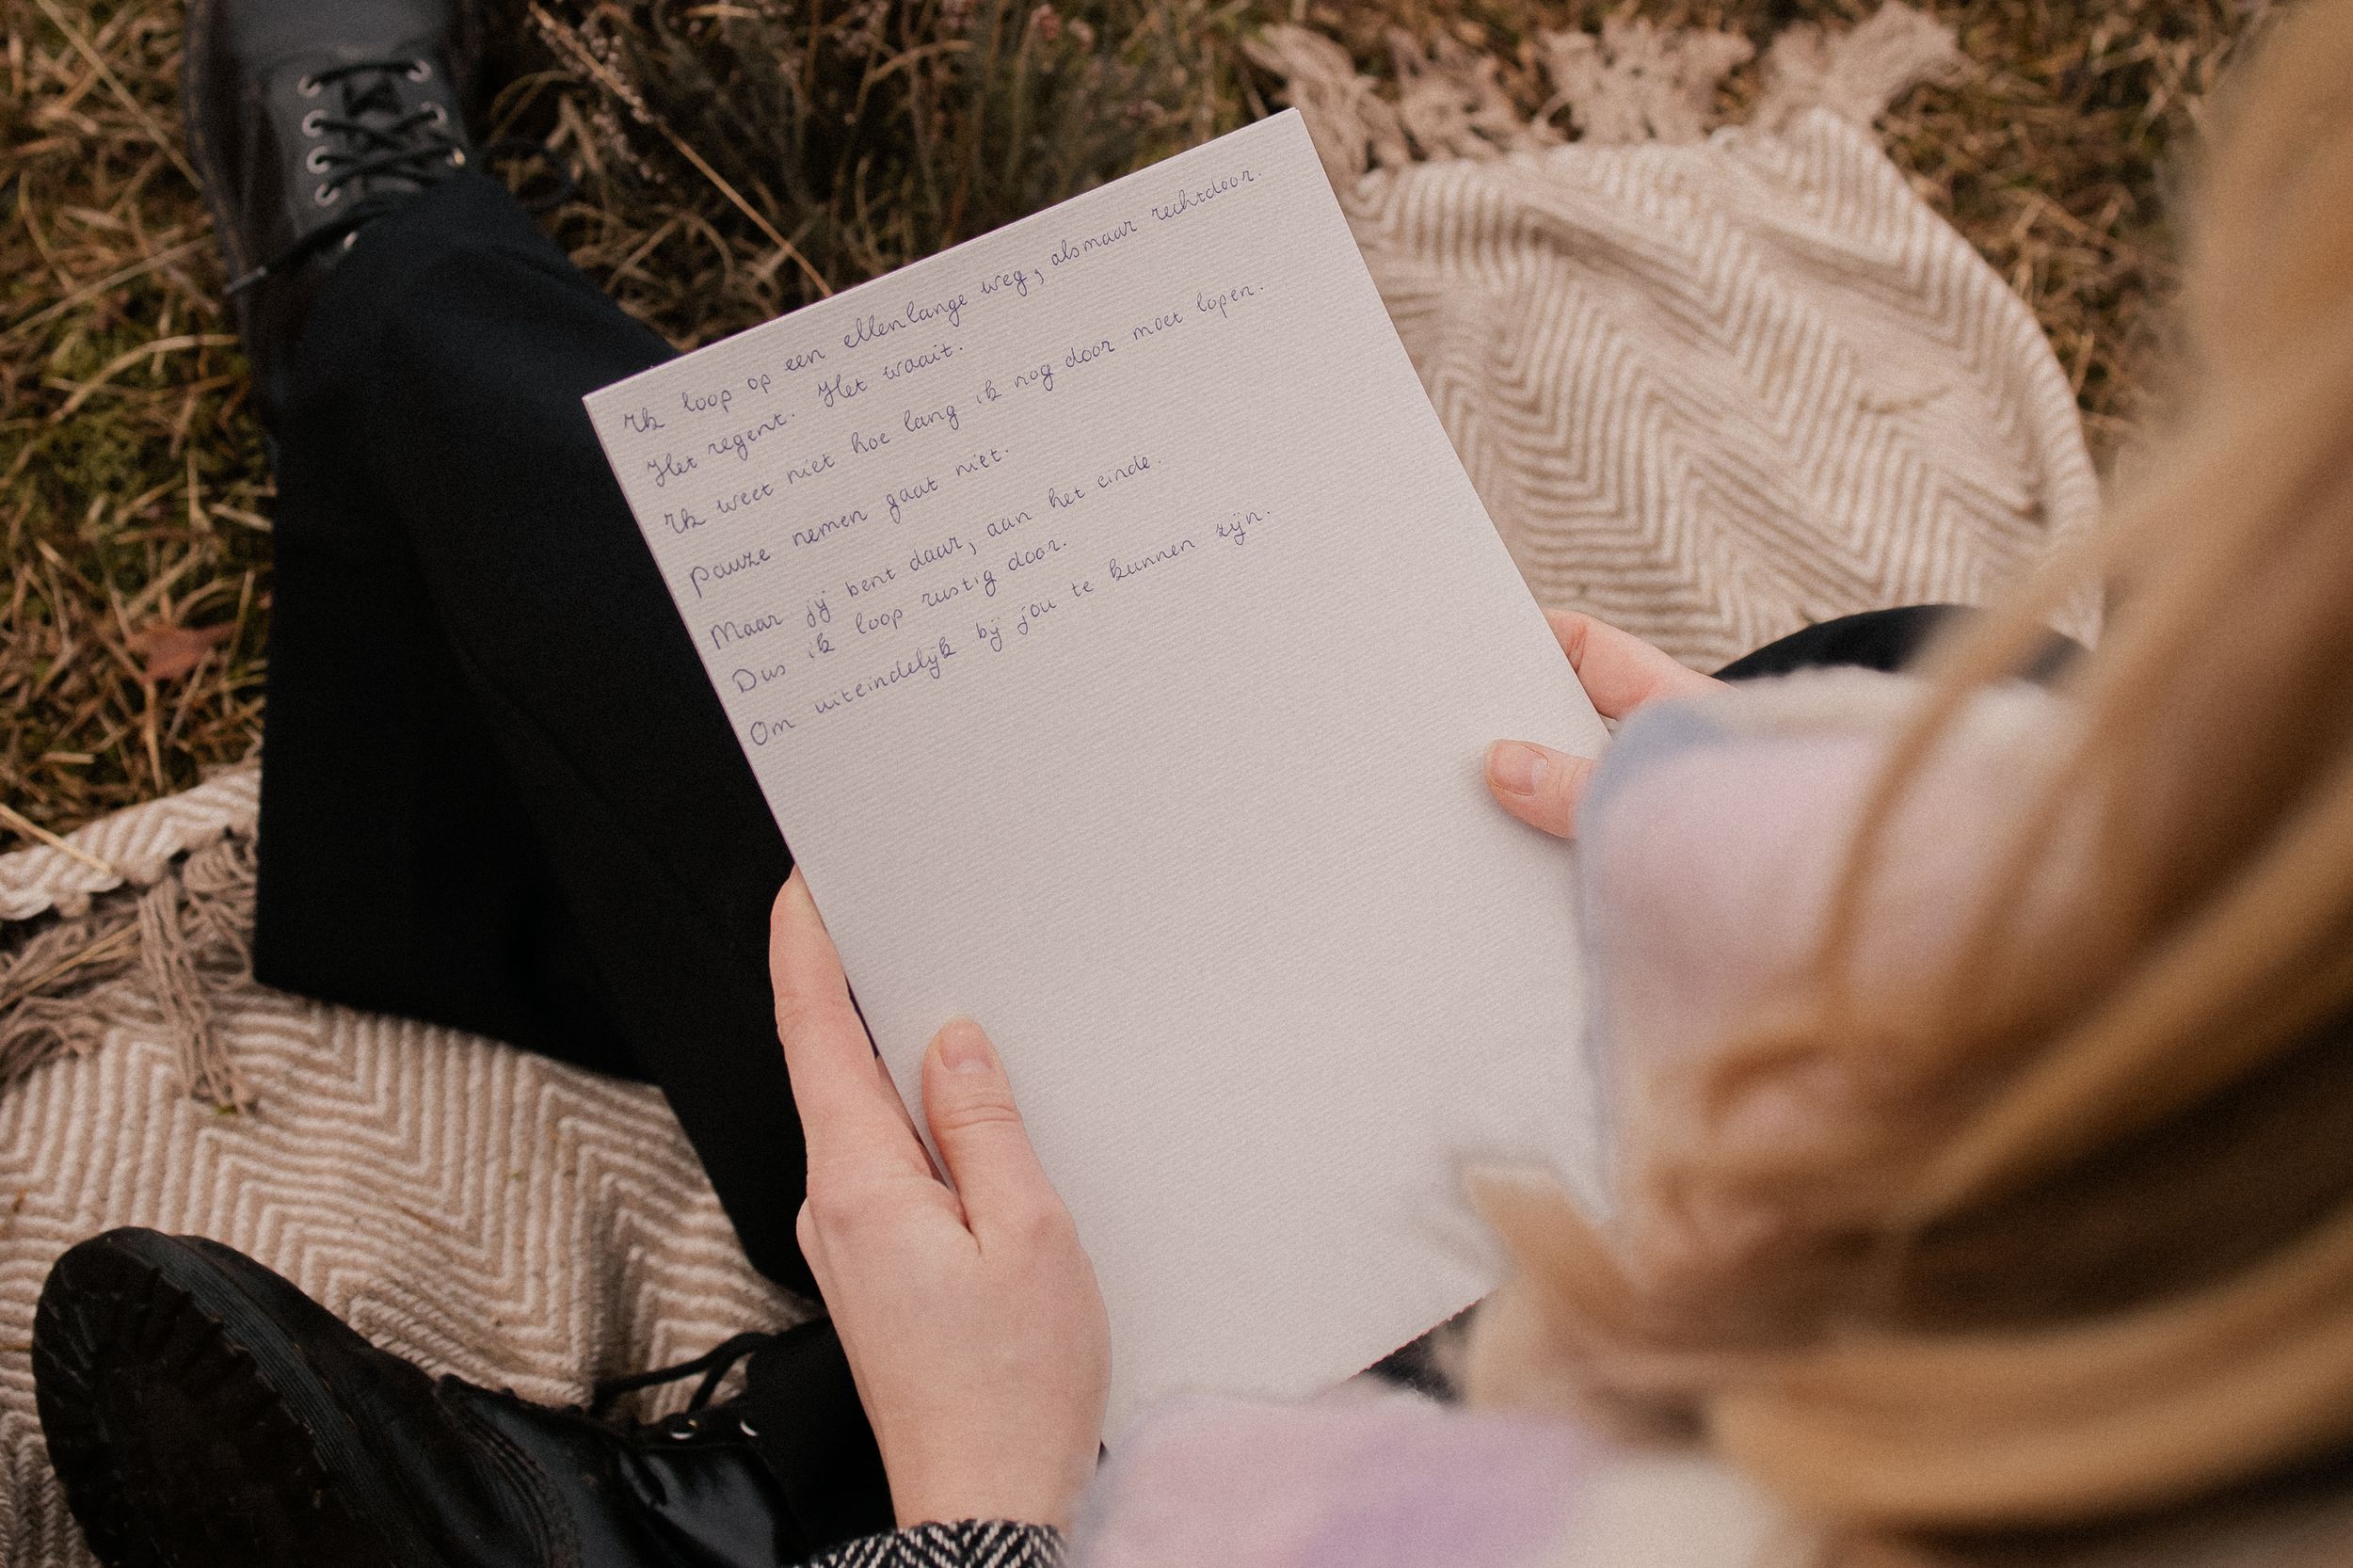 Ik loop op een ellenlange weg, alsmaar rechtdoor.
Het regent. Het waait.
Ik weet niet hoe lang ik nog door moet lopen.
Pauze nemen gaat niet.
Maar jij bent daar, aan het einde.
Dus ik loop rustig door.
Om uiteindelijk bij jou te kunnen zijn.